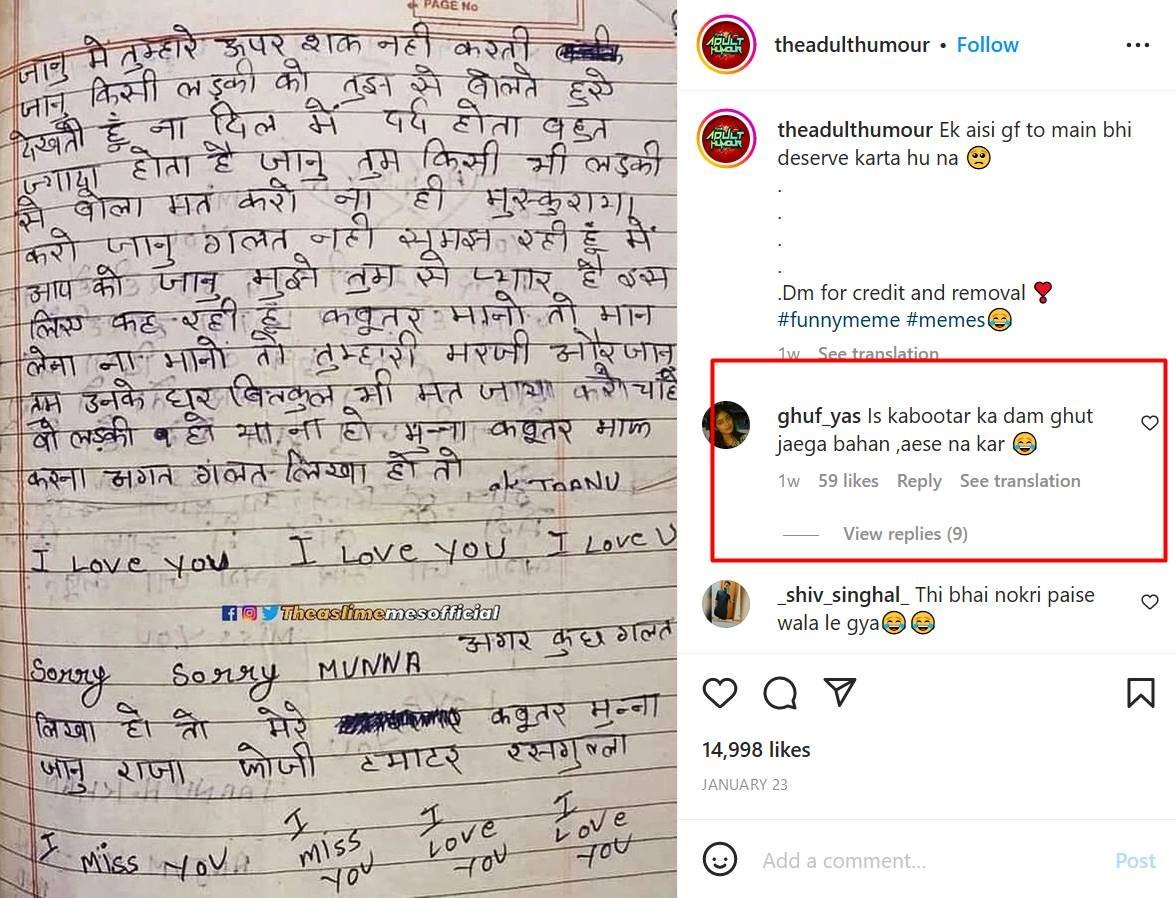 PAGE No
जानु मे तुम्हारे ऊपर शक नही करती
जानु किसी लड़की को तुझ से बोलते हुए
देखती हूँ ना दिल में दर्द होता बहुत
ज्यादा होता है जानु तुम किसी भी लड़की
से बोला मत करो ना ही मुस्कुराया
करो जानु गलत नही समझ रही हूँ में
आप को जानु मुझे तुम से प्यार है इस
लिए कह रही हूँ कबूतर मानो तो मान
लेना ना मानो तो तुम्हारी मरजी और जानु
तुम उनके घर बिलकुल भी मत जाया करो चाहे
वो लड़की हो या ना हो मुन्ना कबूतर माफ
करना अगर गलत लिखा हो तो
I Love you I Love you I Love U
Theaslimememesofficial
Sorry Sorry MUNNA अगर कुछ गलत
लिखा हो तो मेरे कबूतर मुन्ना
जानु राजा टमाटर रसगुल्ला
I Miss you I Miss you I Love you I Love you
theadulthumour • Follow
theadulthumour Ek aisi gf to main bhi
deserve karta hu na 🥺
.
.
.
.
.Dm for credit and removal ❣️
#funnymeme #memes😂
1w See translation
ghuf_yas Is kabootar ka dam ghut
jaega bahan ,aese na kar 😂
1w 59 likes Reply See translation
View replies (9)
_shiv_singhal_ Thi bhai nokri paise
wala le gya😂😂
14,998 likes
JANUARY 23
Add a comment...
Post